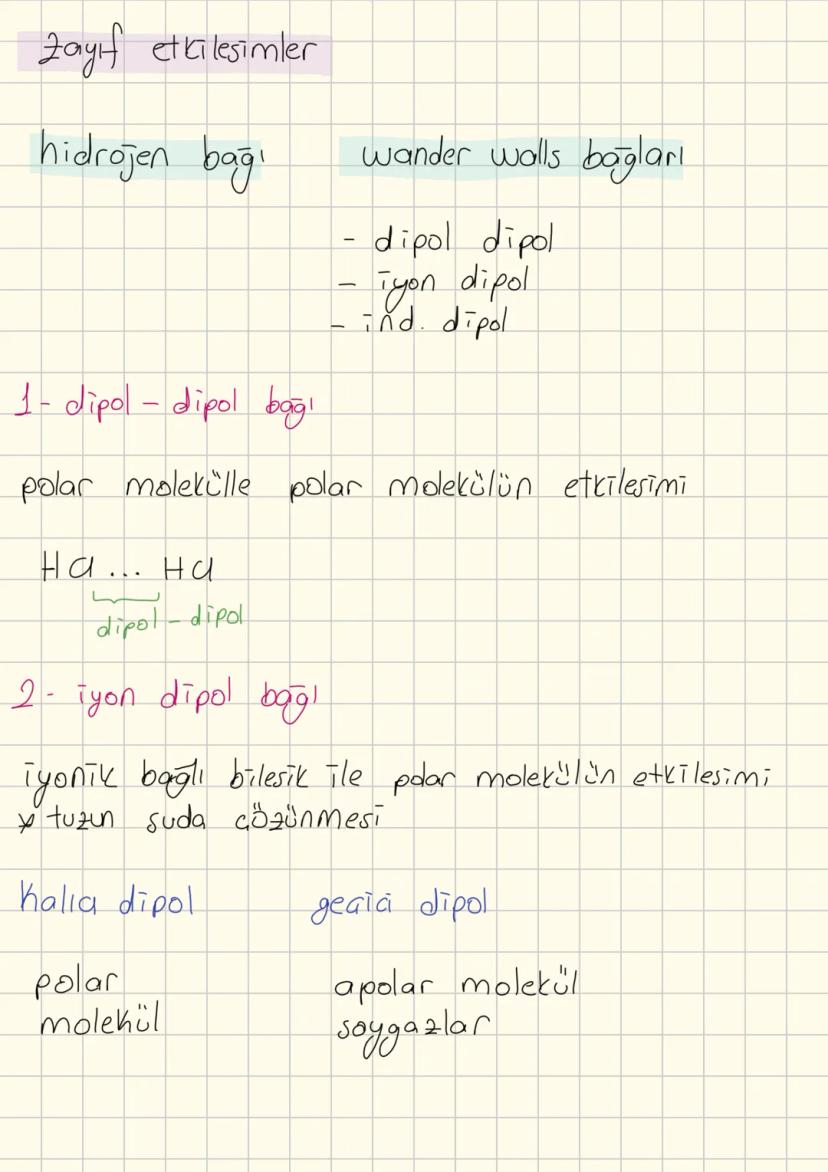 zayıf etkilesimler
hidrojen bağı wander walls bağları
- dipol dipol
- iyon dipol
- ind. dipol
1- dipol - dipol bağı
polar molekülle polar molekülün etkilesimi
HCl ... HCl
dipol - dipol
2- iyon dipol bağı
iyonik bağlı bilesik ile polar molekülün etkilesimi
* tuzun suda çözünmesi
kalıcı dipol geçici dipol
polar apolar molekül
molekül soygazlar